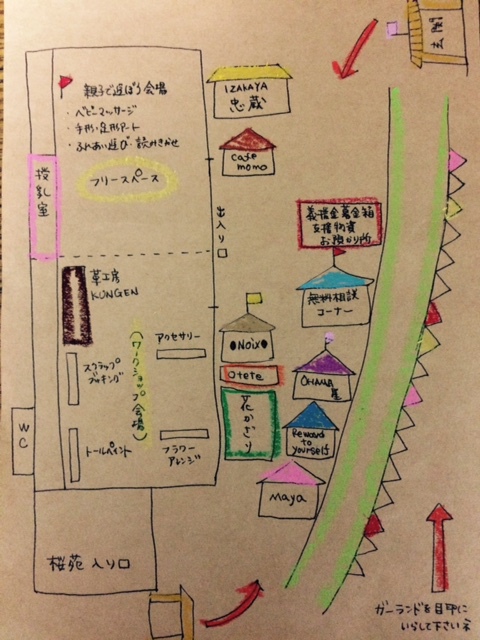 玄関
親子で遊ぼう会場
・ベビーマッサージ
・手形・足形アート
・ふれあい遊び・読みきかせ
フリースペース
授乳室
IZAKAYA
忠蔵
cafe
momo
出入り口
義援金募金箱
支援物資
お預かり所
無料相談
コーナー
革工房
KUNGEN
(ワークショップ会場)
アクセサリー
スクラップ
ブッキング
トールペイント
フラワー
アレンジ
WC
●NOiX●
Otete
花かざり
OHANA屋
Reward
to
yourself
maya
桜苑 入り口
ガーランドを目印に
いらして下さいネ